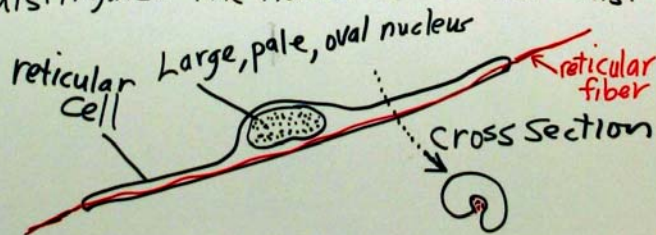 Large, pale, oval nucleus
reticular
cell
reticular
fiber
cross section